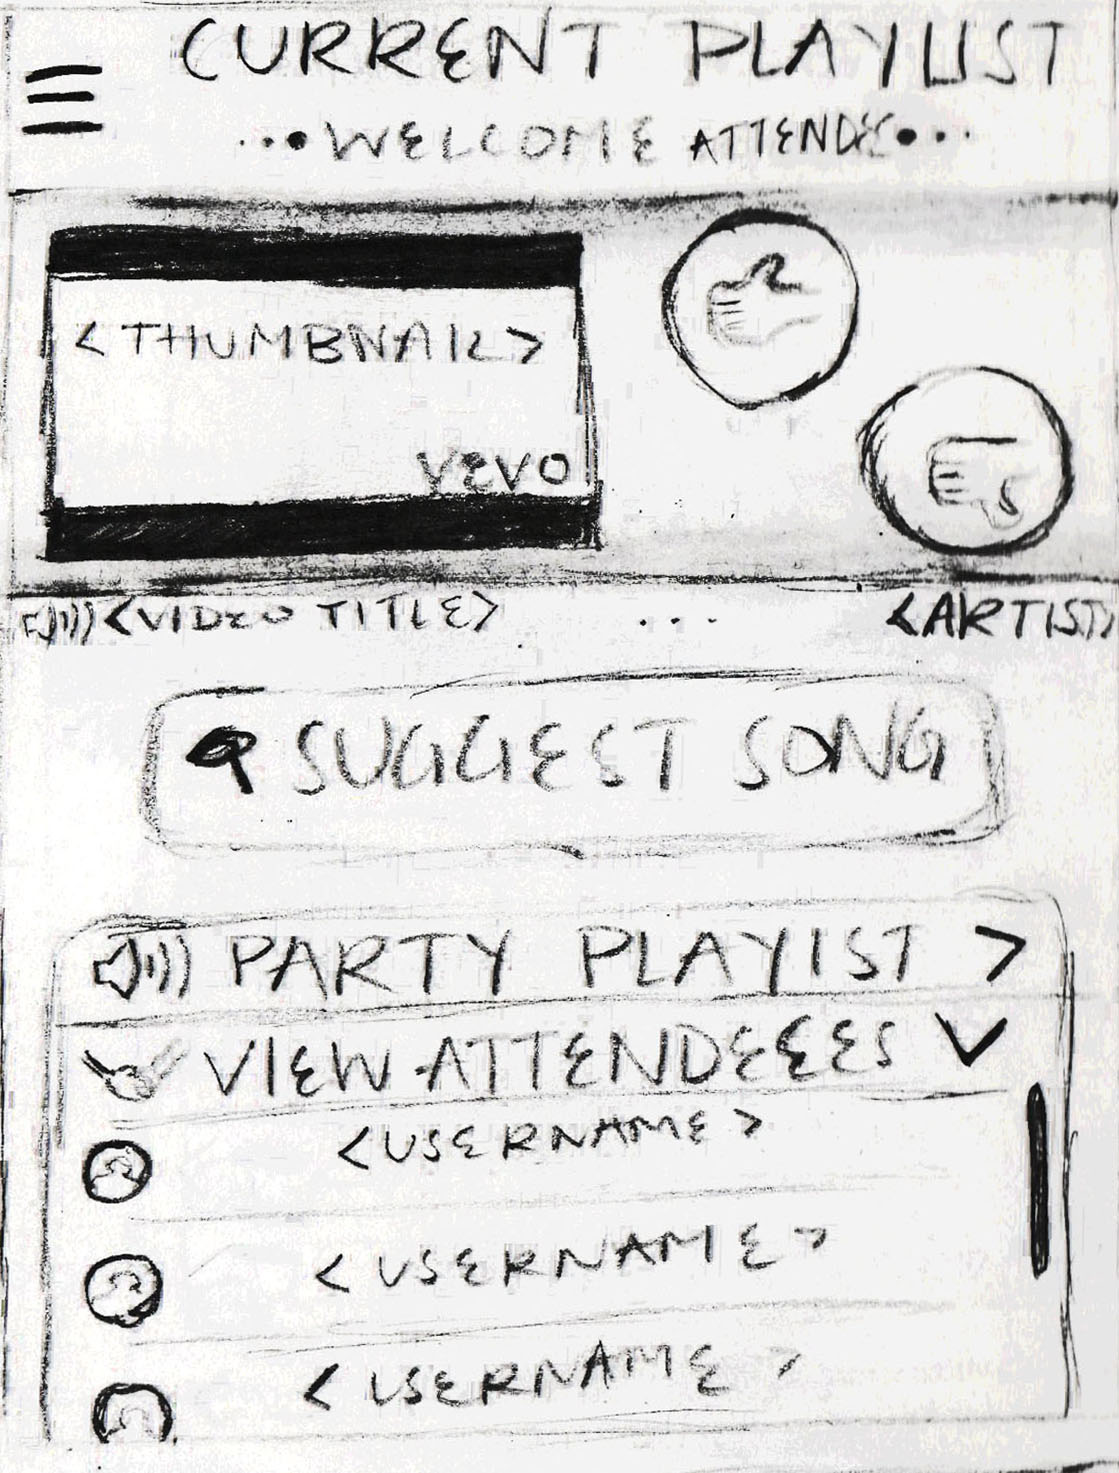 CURRENT PLAYLIST
...WELCOME ATTENDEE...
<THUMBNAIL>
VEVO
<VIDEO TITLE> ... <ARTIST>
SUGGEST SONG
PARTY PLAYIST >
VIEW ATTENDEEES
<USERNAME>
<USERNAME>
<USERNAME>